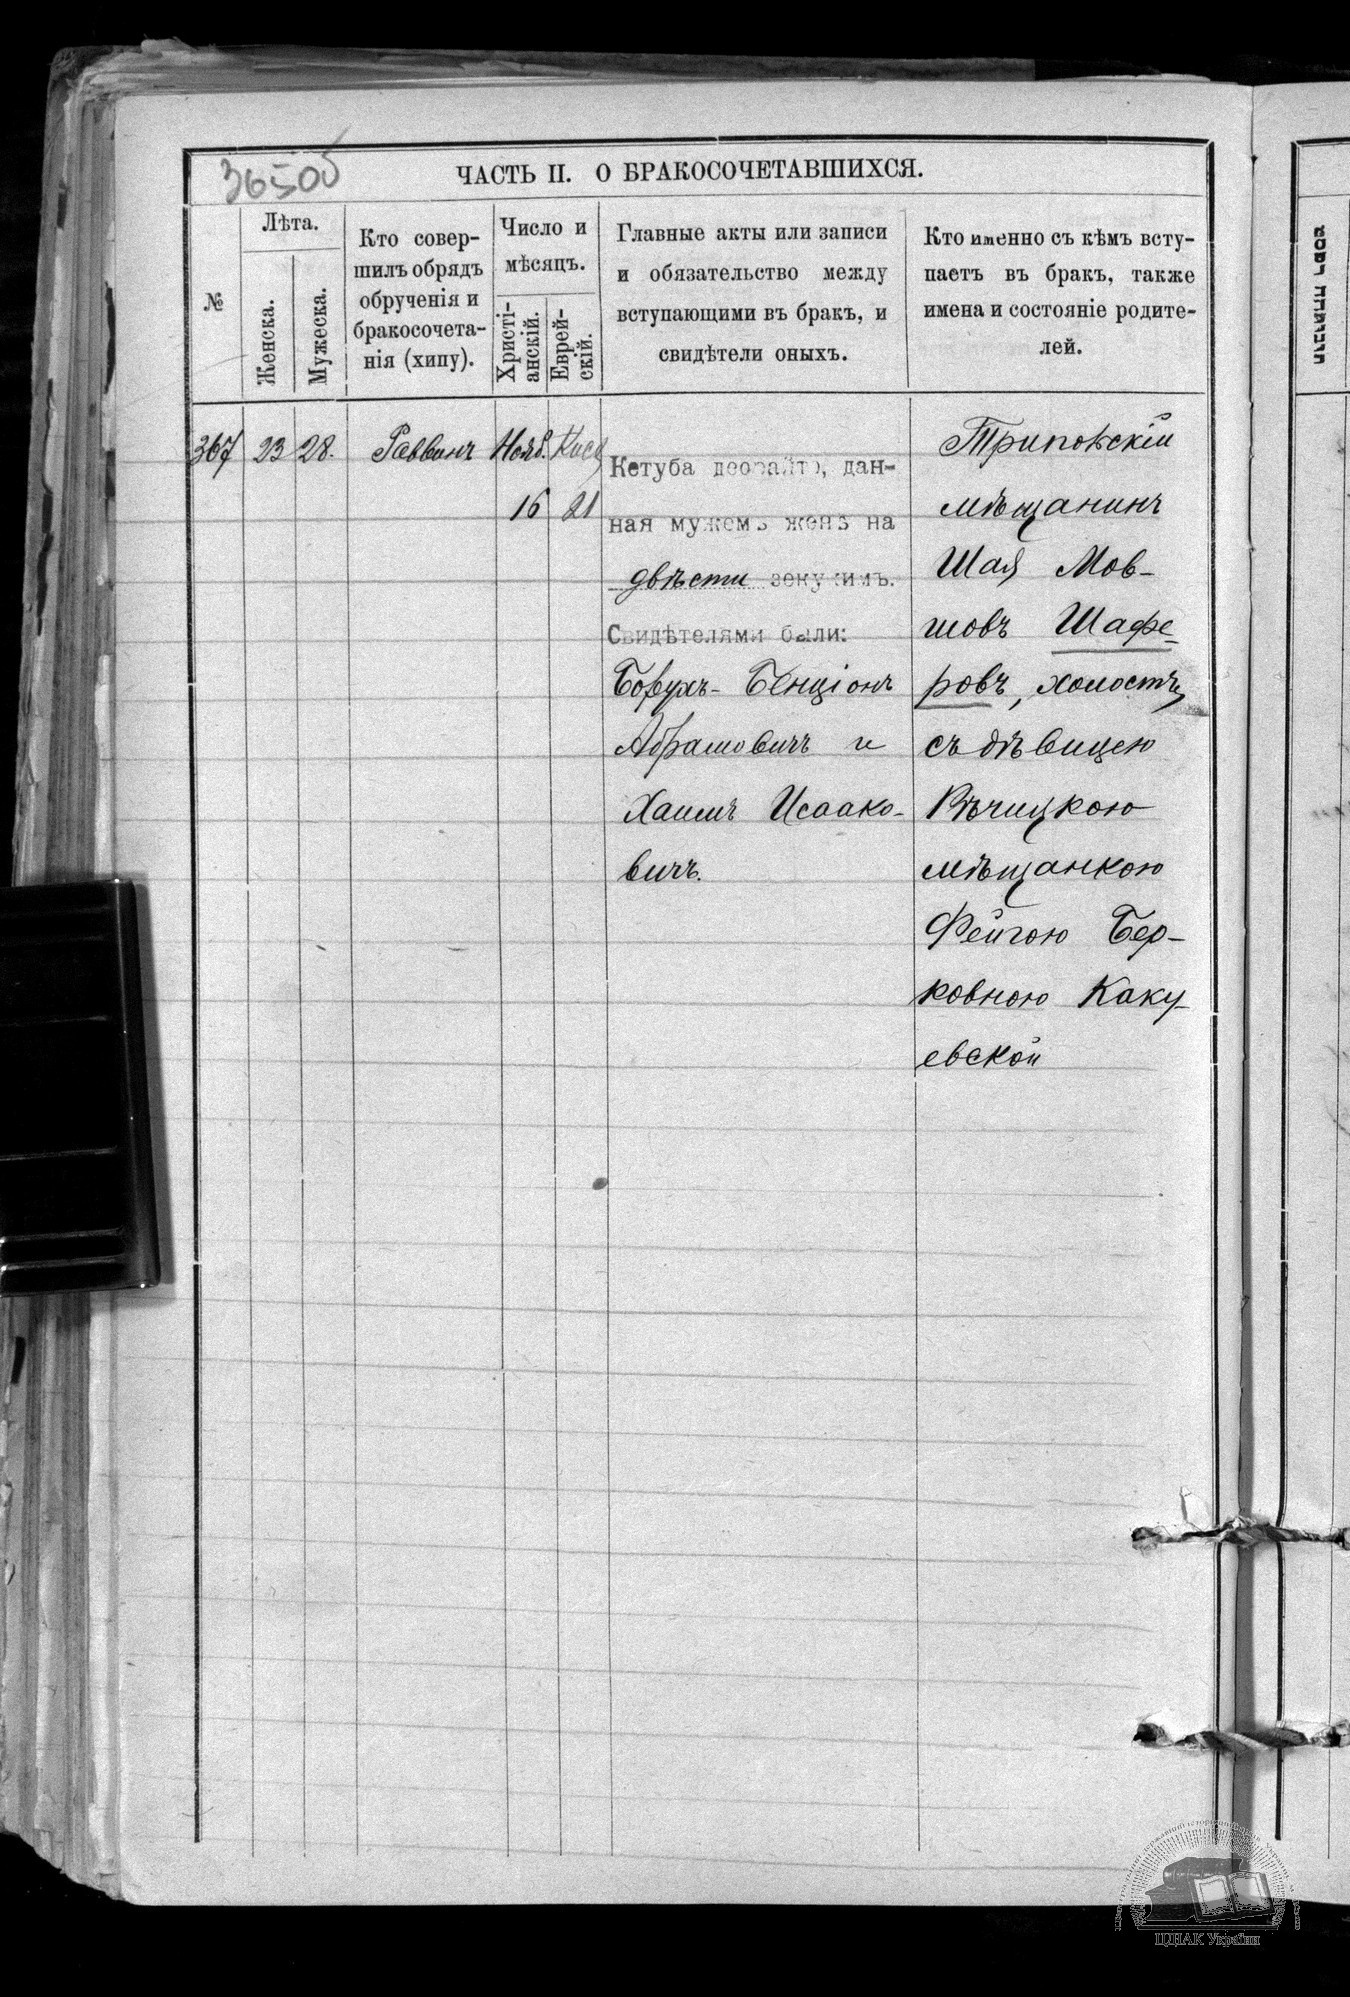 36506
ЧАСТЬ II. О БРАКОСОЧЕТАВШИХСЯ.
№
Лѣта.
Женска.
Мужеска.
Кто совер-
шилъ обрядъ
обрученія и
бракосочета-
нія (хипу).
Число и
мѣсяцъ.
Христі-
анскій.
Еврей-
скій.
Главные акты или записи
и обязательство между
вступающими въ бракъ, и
свидѣтели оныхъ.
Кто именно съ кѣмъ всту-
паетъ въ бракъ, также
имена и состояніе родите-
лей.
367 23 28. Раввинъ Нояб. Кисл
16 21
Кетуба деорайто, дан-
ная мужемъ женѣ на
двѣсти зекукимъ.
Свидѣтелями были:
Борухъ-Бенціонъ
Абрамовичъ и
Хаимъ Исаако-
вичъ.
Трипольскій
мѣщанинъ
Шая Мов-
шовъ Шафе-
ровъ, холостъ,
съ дѣвицею
Рѣчицкою
мѣщанкою
Фейгою Бер-
ковною Каку-
евской
ЦДІАК України